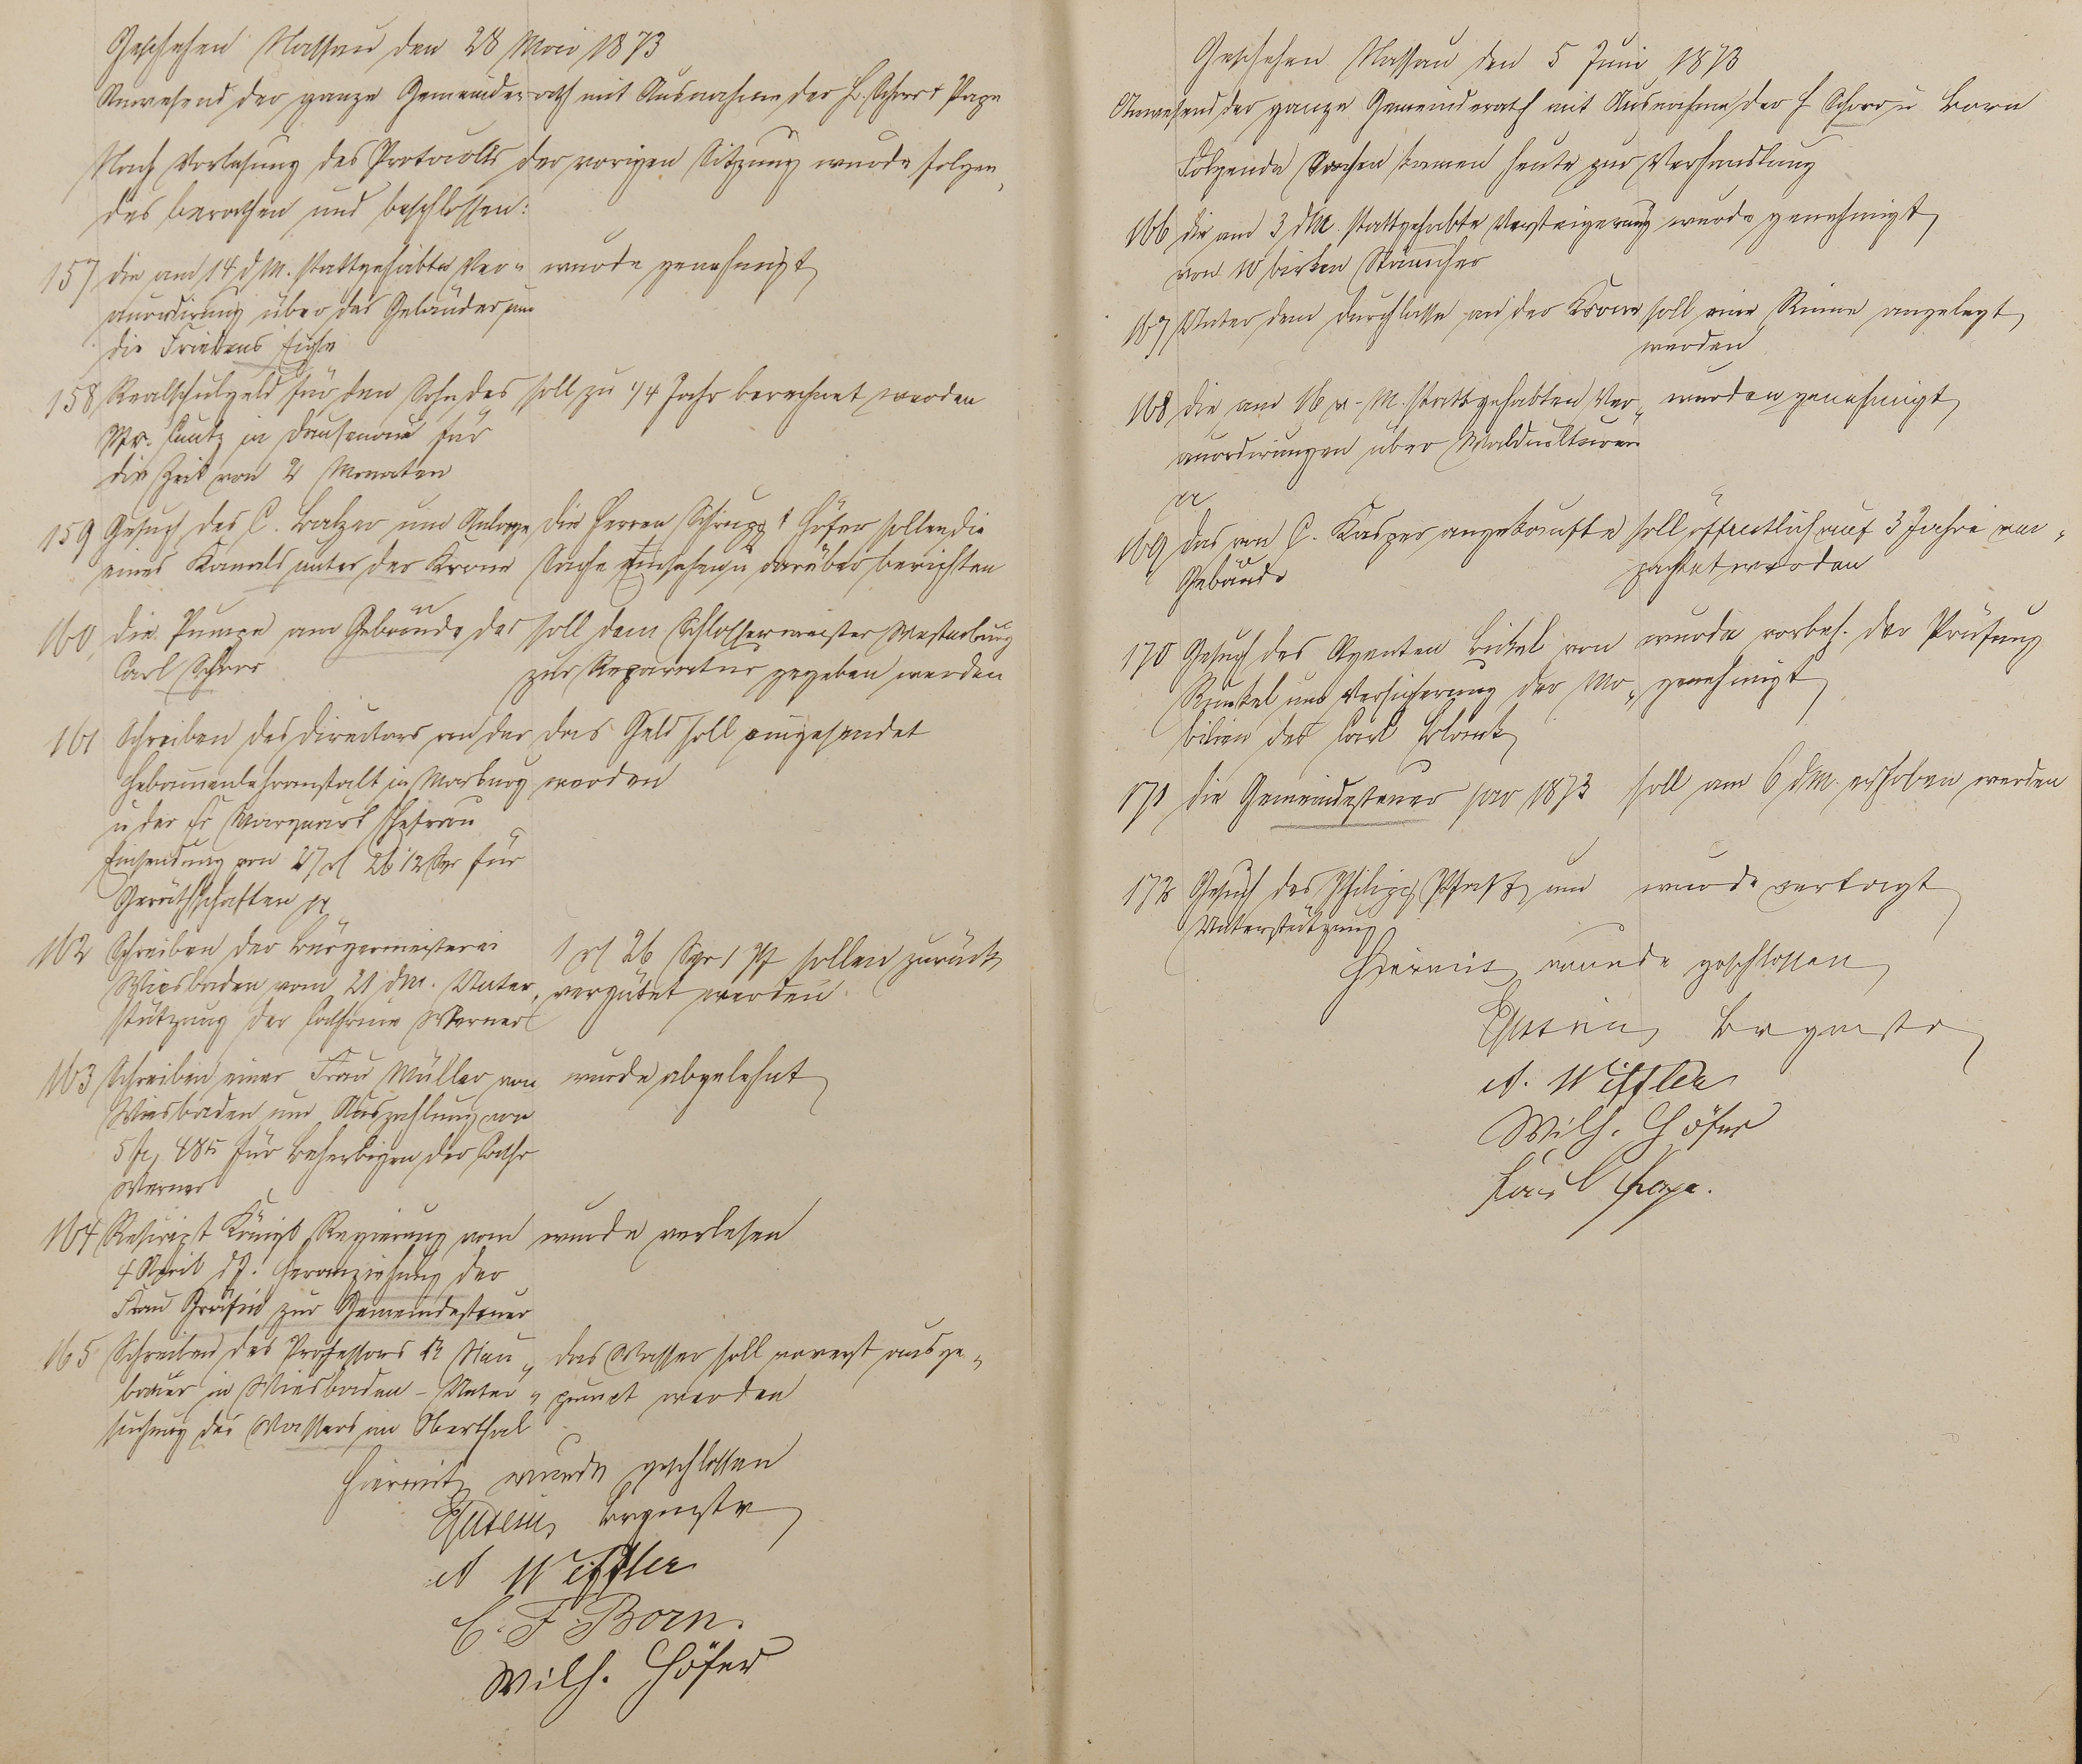 Geschehen Nassau den 28 Mai 1873
Anwesend der ganze Gemeinderath mit Ausnahme der H. Schorr & Pape
Nach Vorlesung des Protocolls der vorigen Sitzung wurde folgen-
des berathen und beschlossen:
157 die am 14 d M. stattgehabte Ver-
accordirung über das Geländer um
die Friedens Eiche
wurde genehmigt
158 Realschulgeld für den Sohn des
Wr. Lentz in Dausenau für
die Zeit von 2 Monaten
soll zu 1/4 Jahr berechnet werden
159 Gesuch des C. Balzer um Anlage
eines Kanals unter der Krone
die Herren Schrupp & Höfer sollen die
Sache Einsehen u darüber berichten
160, die Pumpe am Gebäude des
Carl Schorr
soll dem Schlossermeister Westerburg
zur Reparatur gegeben werden
161 Schreiben des Directors von der
Hebammenlehranstalt in Marburg
u der Fr Marquart Ehefrau
Einsendung von 27 rl 26 1/2 Sgr für
Geräthschaften pp
das Geld soll eingesendet
werden
162 Schreiben der Bürgermeisterei
Wiesbaden vom 21 dM. Unter-
stützung der Cathrine Werner
1 rl 26 Sgr 1 Pf sollen zurück
vergütet werden.
163 Schreiben einer Frau Müller von
Wiesbaden um Auszahlung von
5 fl, 48 kr für Beherbigen der Cathr
Werner
wurde abgelehnt
164 Rescript Königl Regierung vom
4 April dJ. Heranziehung der
Frau Gräfin zur Gemeindesteuer
wurde verlesen
165 Schreiben des Professors Dr Neu-
bauer in Wiesbaden - Unter-
suchung des Wassers im Oberthal
das Wasser soll vorerst ausge-
pumpt werden
Hiermit wurde geschlossen
Brgmstr
A Wissler
C. F. Born.
Wilh. Höfer
Geschehen Nassau den 5 Juni 1873
Anwesend der ganze Gemeinderath mit Ausnahme der H Schorr u Born
Folgende Sachen kamen heute zur Verhandlung
166 die am 3 dM. stattgehabte Versteigerung
von 10 birken Stämmcher
wurde genehmigt
167 Unter dem Durchlasse an der Krone
soll eine Rinne angelegt
werden
168 die am 16 v. M. stattgehabten Ver-
accordirungen über Waldculturen
pp
wurden genehmigt
169 das von C. Kasper angekaufte
Gebäude
soll öffentlich auf 3 Jahre ver-
pachtet werden
170 Gesuch des Agenten Bickel von
Runkel um Versicherung der Mo-
bilien des Carl
wurde vorbeh. der Prüfung
genehmigt
171 die Gemeindesteuer pro 1873
soll am 6 dM. erhoben werden
172 Gesuch des Philipp um
Unterstützung
wurde vertagt
Hiermit wurde geschlossen
Brgmstr
A. Wissler
Wilh. Höfer
Carl Pape.